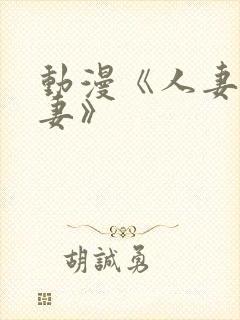 動漫《人妻
妻》
胡誠勇